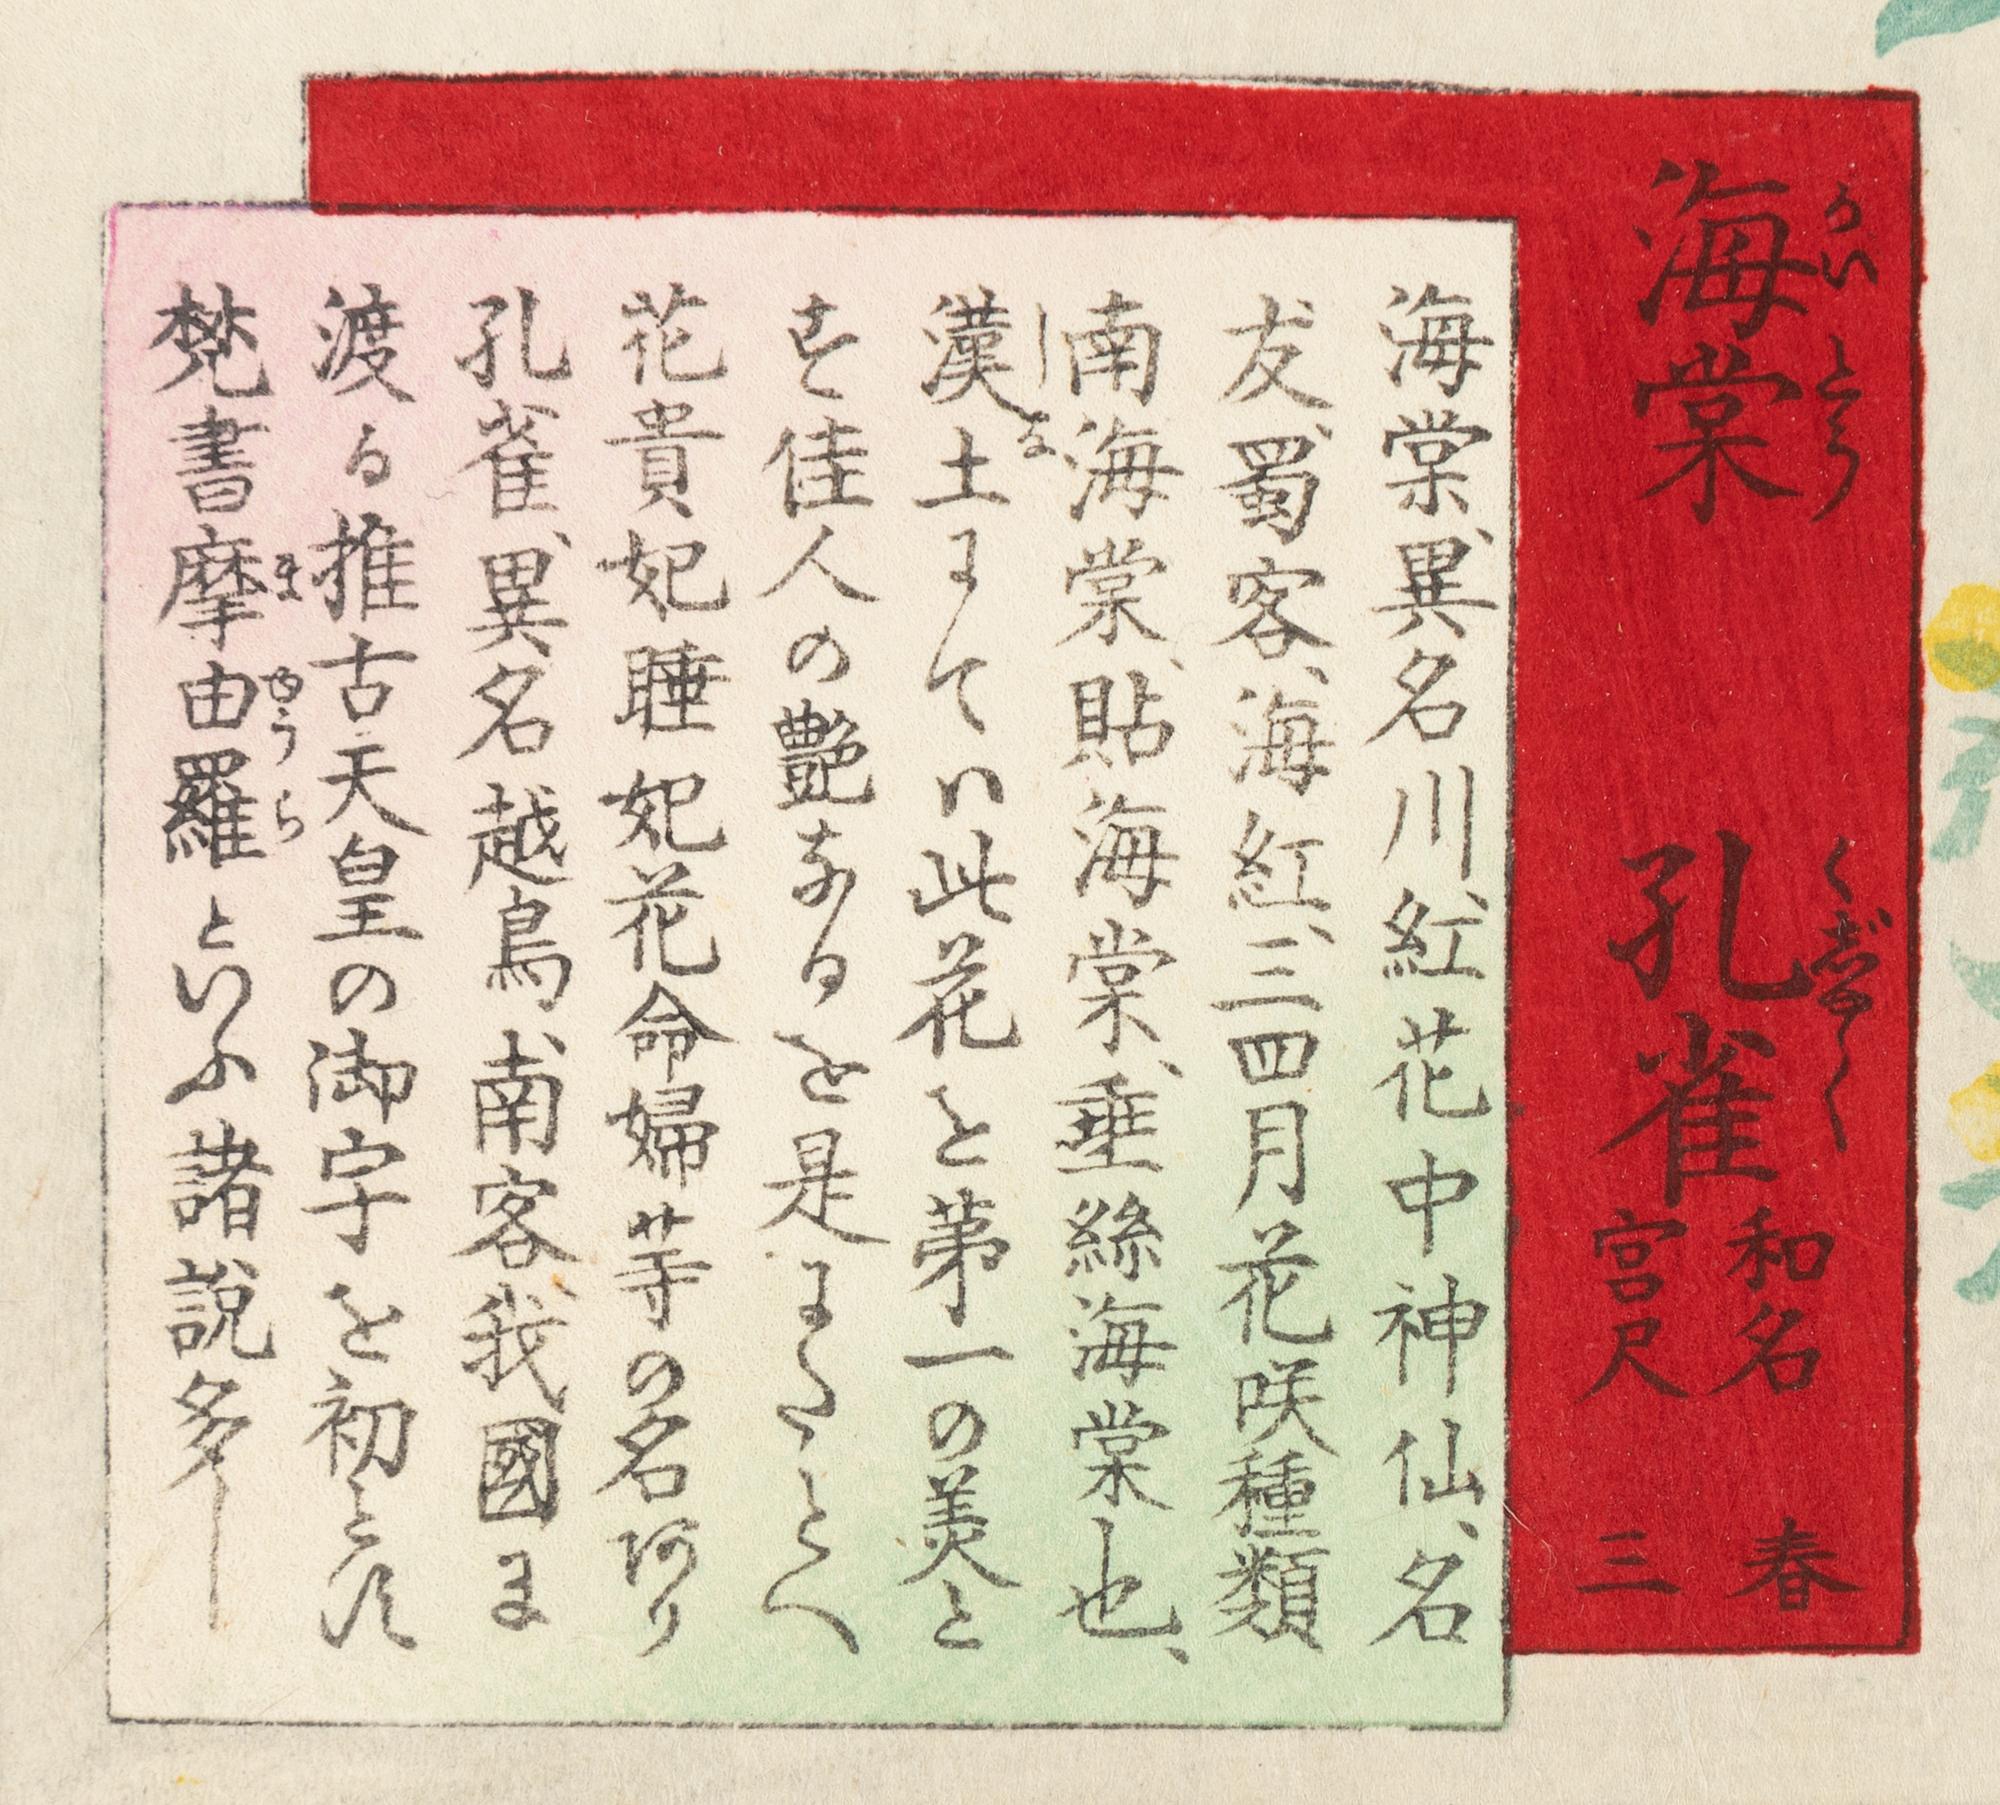 海棠 孔雀 和名
宮尺
春
三
かいとう
くじやく
海棠、異名川紅、花中神仙、名
友、蜀客、海紅、三四月花咲種類
南海棠、貼海棠、垂絲海棠也、
漢土にてハ此花を第一の美と
もろこし
す佳人の艶なるを是にたとへ
花貴妃睡妃花命婦等の名あり
孔雀、異名越鳥、南客、我國に
渡る推古天皇の御宇を初とす
梵書摩由羅といふ諸説多し
まゆうら